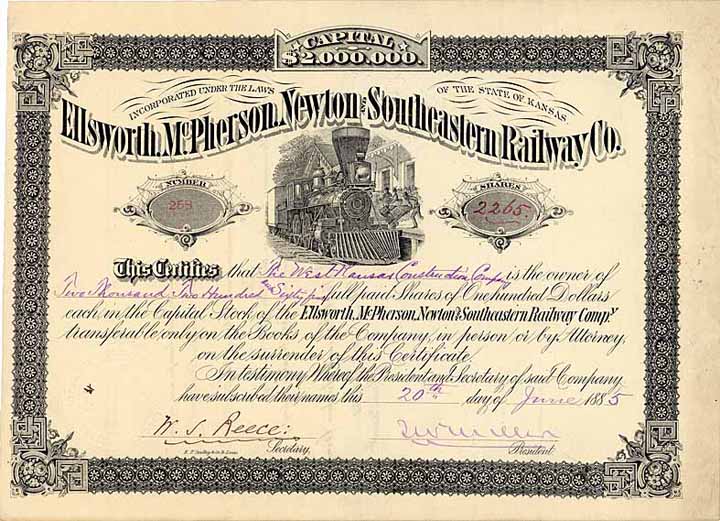 CAPITAL
$2,000,000.
INCORPORATED UNDER THE LAWS OF THE STATE OF KANSAS
Ellsworth, McPherson, Newton and Southeastern Railway Co.
NUMBER
258
SHARES
2265.
This Certifies that The West Kansas Construction Company is the owner of
Two Thousand Two Hundred and Sixty five full paid Shares of One hundred Dollars
each in the Capital Stock of the Ellsworth, McPherson, Newton and Southeastern Railway Compy.
transferable only on the Books of the Company, in person or by Attorney,
on the surrender of this Certificate.
In testimony Whereof the President and Secretary of said Company
have subscribed their names this 20th day of June 1885
W. S. Reece:
Secretary,
President